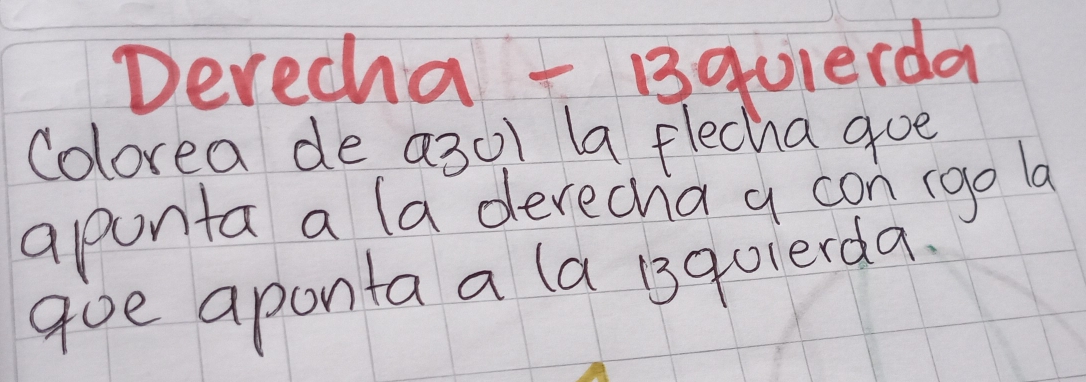 Derecha - Izquierda
Colorea de azul la flecha que
apunta a la derecha y con rojo la
que apunta a la izquierda.